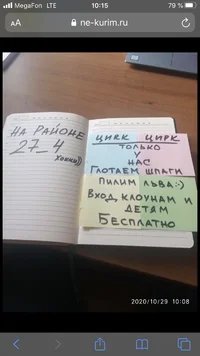 MegaFon LTE
10:15
79 %
AA
ne-kurim.ru
НА РАЙОНЕ
27_4
ХОККИ))
ЦИRK ЦИРК
ТОЛЬКО
У
НАС
ГЛОТАЕМ ШПАГИ
ПИЛИМ ЛЬВА:-)
ВХОД КЛОУНАМ И
ДЕТЯМ
БЕСПЛАТНО
2020/10/29 10:08